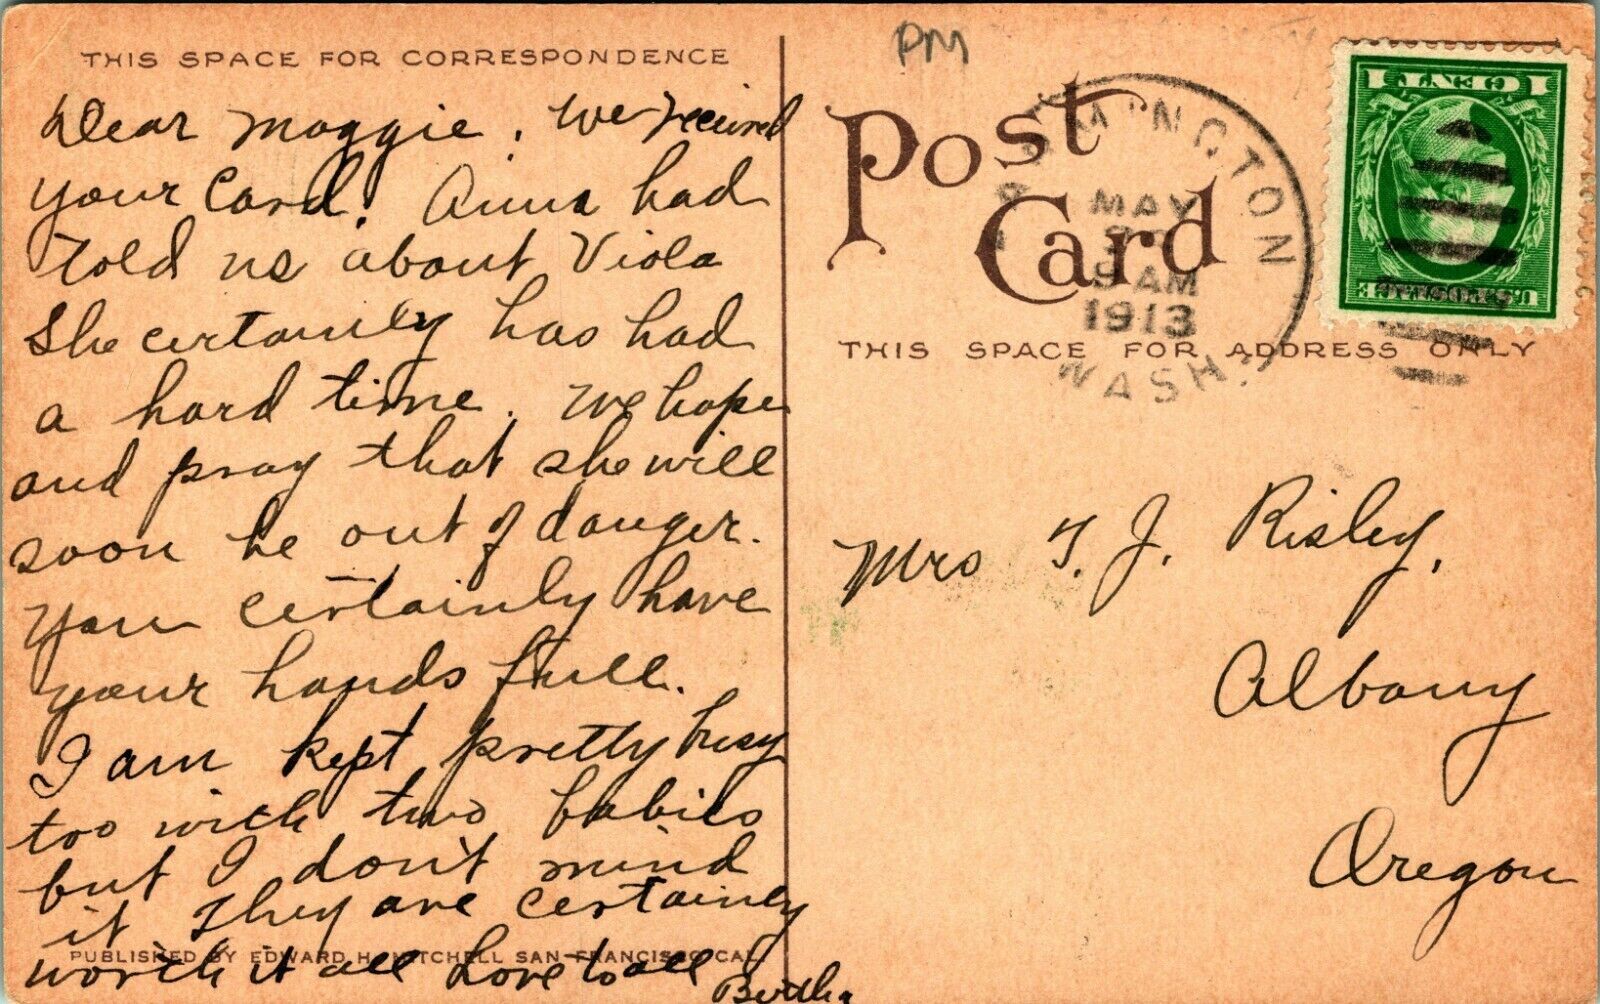 THIS SPACE FOR CORRESPONDENCE
Dear Maggie, We received
your Card. Anna had
told us about Viola
She certainly has had
a hard time. We hope
and pray that she will
soon be out of danger.
You certainly have
your hands full.
I am kept pretty busy
too with two babies
but I don't mind
it They are certainly
worth it all Love to all
Bertha
PUBLISHED BY EDWARD H. MITCHELL SAN FRANCISCO CAL.
PM
Post
Card
MAY
9 AM
1913
WASH.
1 CENT 1
U.S. POSTAGE
THIS SPACE FOR ADDRESS ONLY
Mrs T. J. Risley,
Albany
Oregon